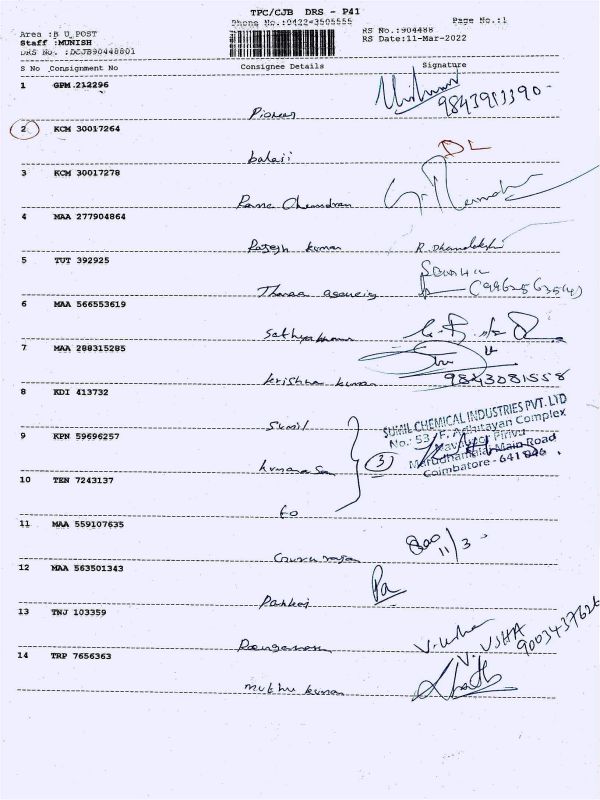 TPC/CJB DRS - P41
Phone No.:0422-3505555 Page No.:1
Area :B U POST RS No.:904488
Staff :MUNISH RS Date:11-Mar-2022
DRS No. :DCJB90448801
S No Consignment No Consignee Details Signature
1 GPM 212296
9843911390-
Pioneer
2 KCM 30017264
balaji DL
3 KCM 30017278
Rama Chandran
4 MAA 277904864
Rajesh kumar R. Dhanalakshi
5 TUT 392925
Thanaa agencies (9962563514)
6 MAA 566553619
Sathya
7 MAA 288315285
krishna kumar 9843081558
8 KDI 413732
Sumil
SUMIL CHEMICAL INDUSTRIES PVT. LTD
No.: 53/F, Adhitayan Complex
9 KPN 59696257
Marudhamalai Main Road
Coimbatore - 641 046
kumarasan (3)
10 TEN 7243137
to
11 MAA 559107635
11/3
Gururaja
12 MAA 563501343
Pankaj Pa
13 TNJ 103359
V. USHA
9003437626
14 TRP 7656363
muthu kumar